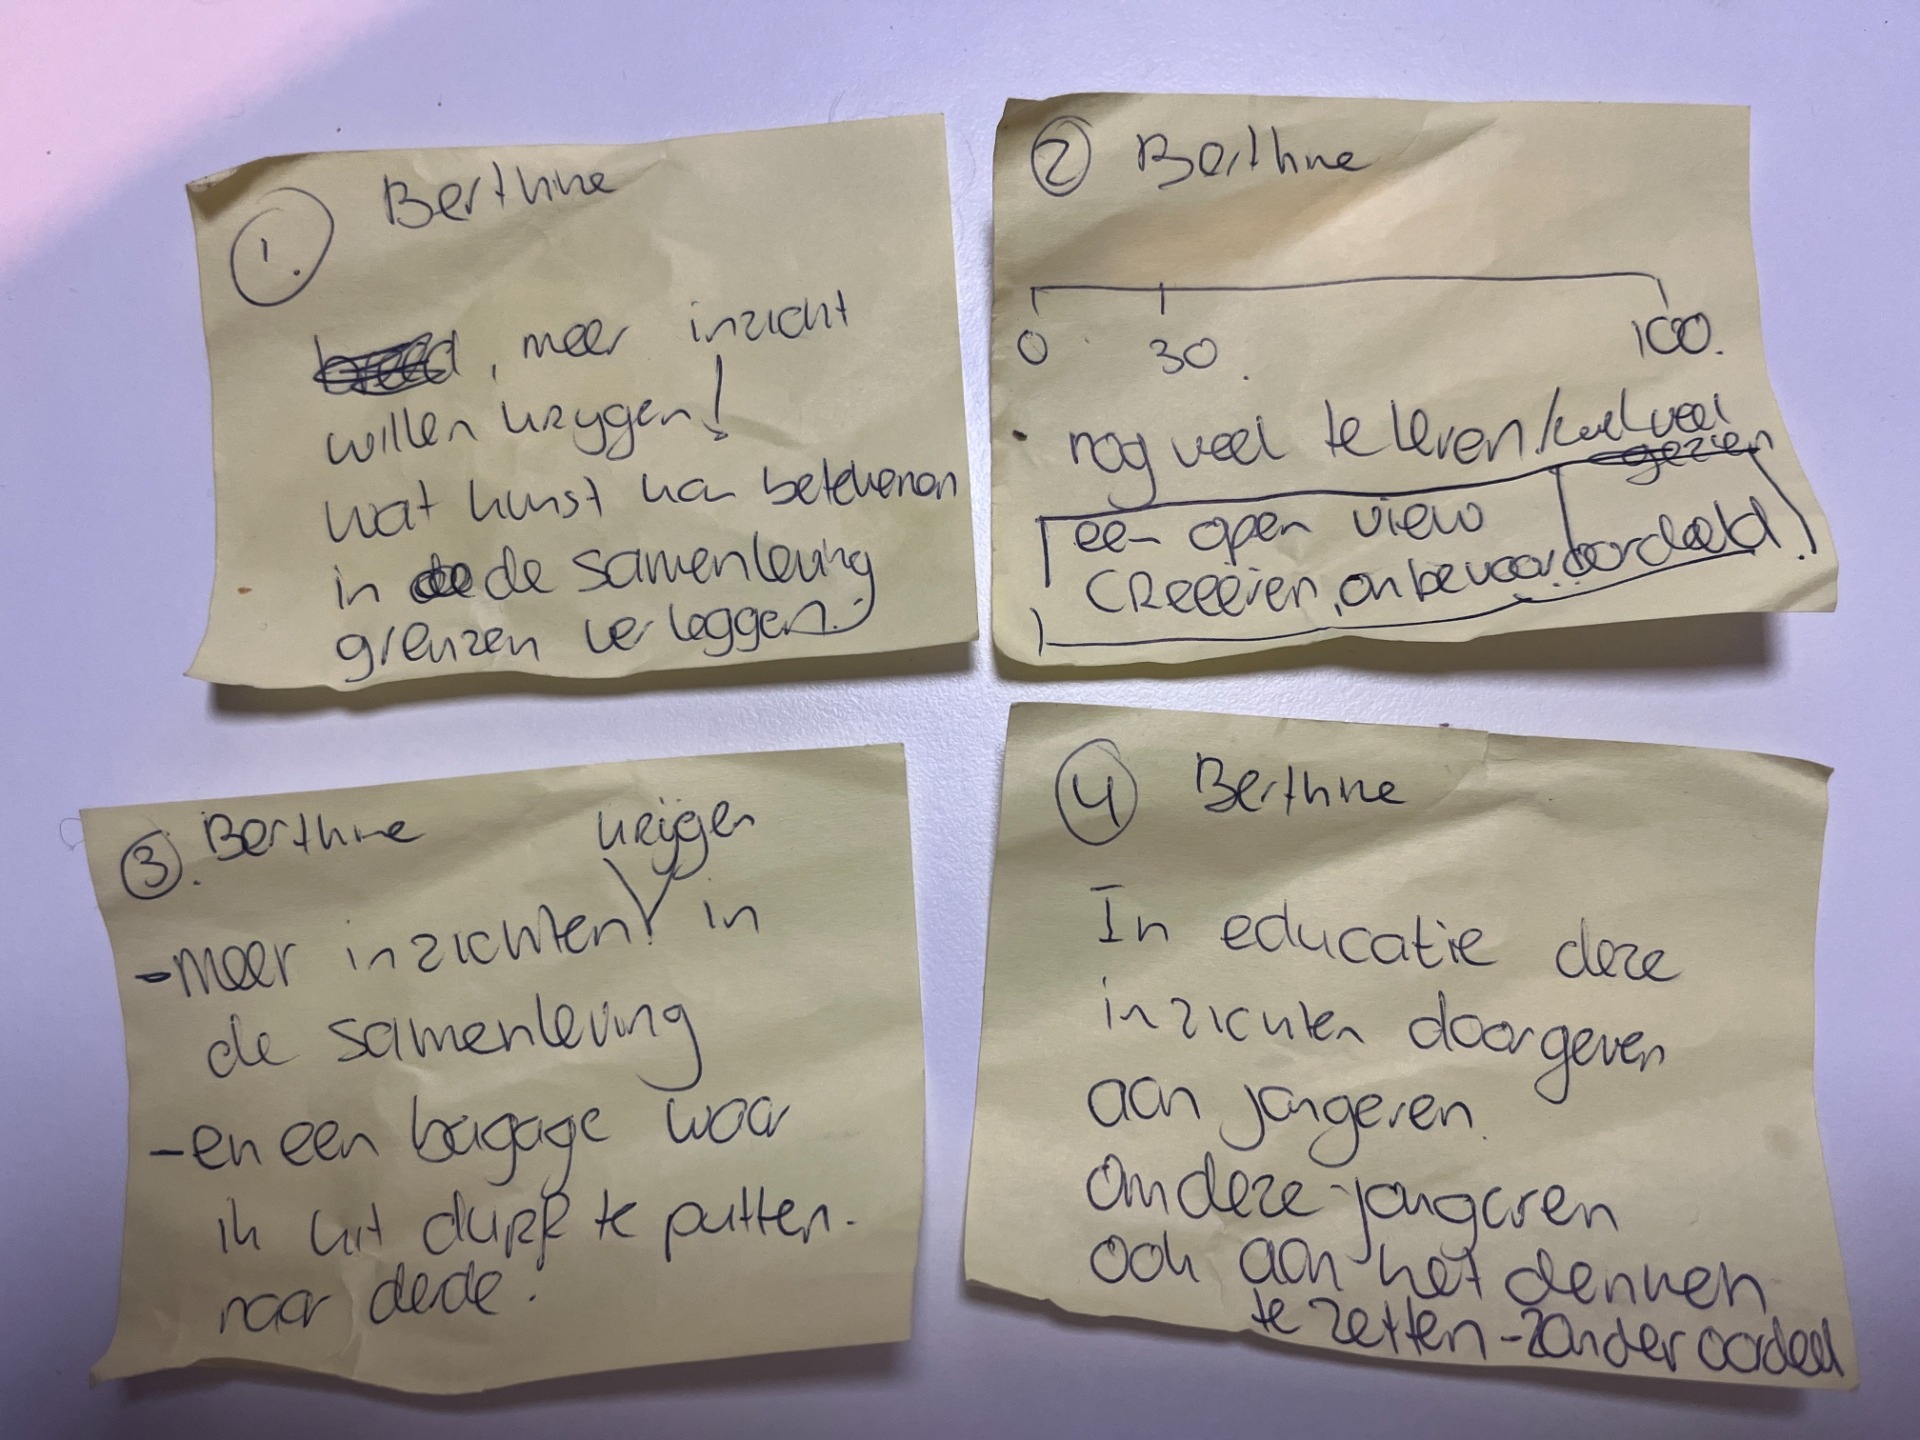 1. Berthine
, meer inzicht
willen krygen!
wat kunst kan betekenen
in de samenleving
grenzen verleggen.
2 Berthine
0 30. 100.
nog veel te leren/wel veel
gezien
een open view
creeëren, onbevooroordeeld.
3. Berthine krijgen
-meer inzichten in
de samenleving
-en een bagage waar
ik uit durf te putten.
naar derde!
4 Berthine
In educatie deze
inzichten doorgeven
aan jongeren.
Om deze jongeren
ook aan het denken
te zetten - zonder oordeel